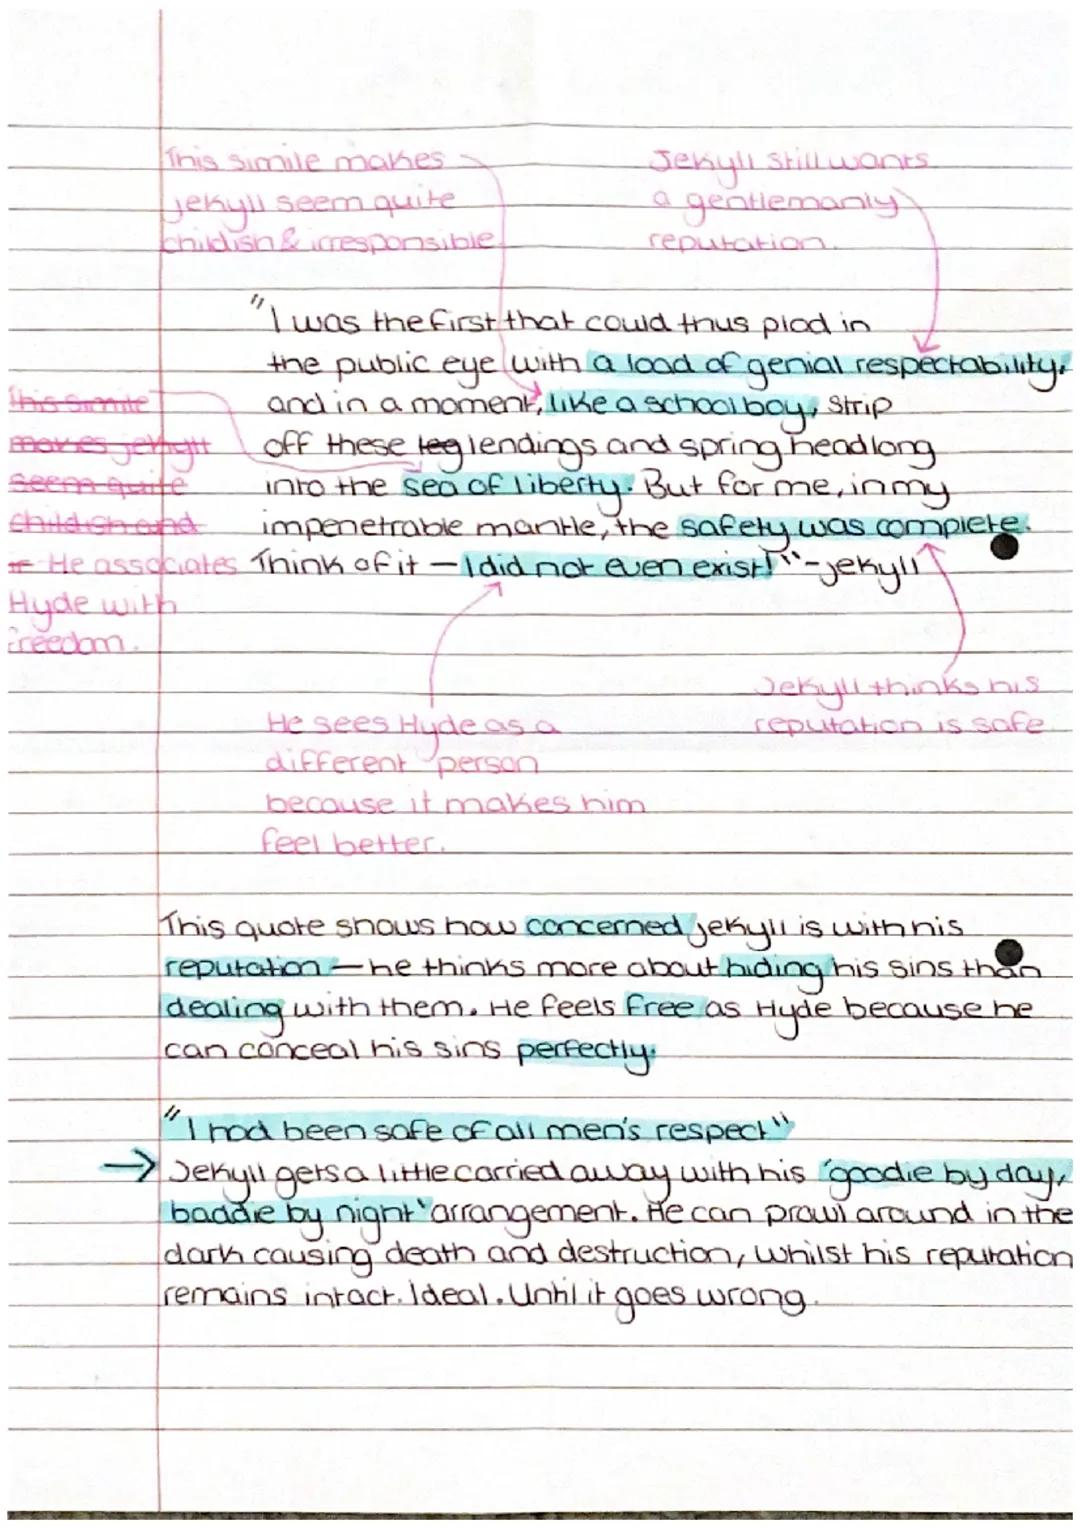 This simile makes
jekyll seem quite
childish & irresponsible
Jekyll still wants
a gentlemanly
reputation.
"I was the first that could thus plod in
the public eye with a load of genial respectability,
and in a moment, like a schoolboy, strip
off these leg lendings and spring headlong
into the sea of liberty. But for me, in my
impenetrable mantle, the safety was complete.
Think of it – I did not even exist!" - jekyll
This simile
makes jekyll
seem quite
childish and
ir He associates
Hyde with
freedom.
He sees Hyde as a
different person
because it makes him
feel better.
Jekyll thinks his
reputation is safe
This quote shows how concerned jekyll is with his
reputation – he thinks more about hiding his sins than
dealing with them. He feels free as Hyde because he
can conceal his sins perfectly.
"I had been safe of all men's respect"
→ Jekyll gets a little carried away with his 'goodie by day,
baddie by night' arrangement. He can prowl around in the
dark causing death and destruction, whilst his reputation
remains intact. Ideal. Until it goes wrong.